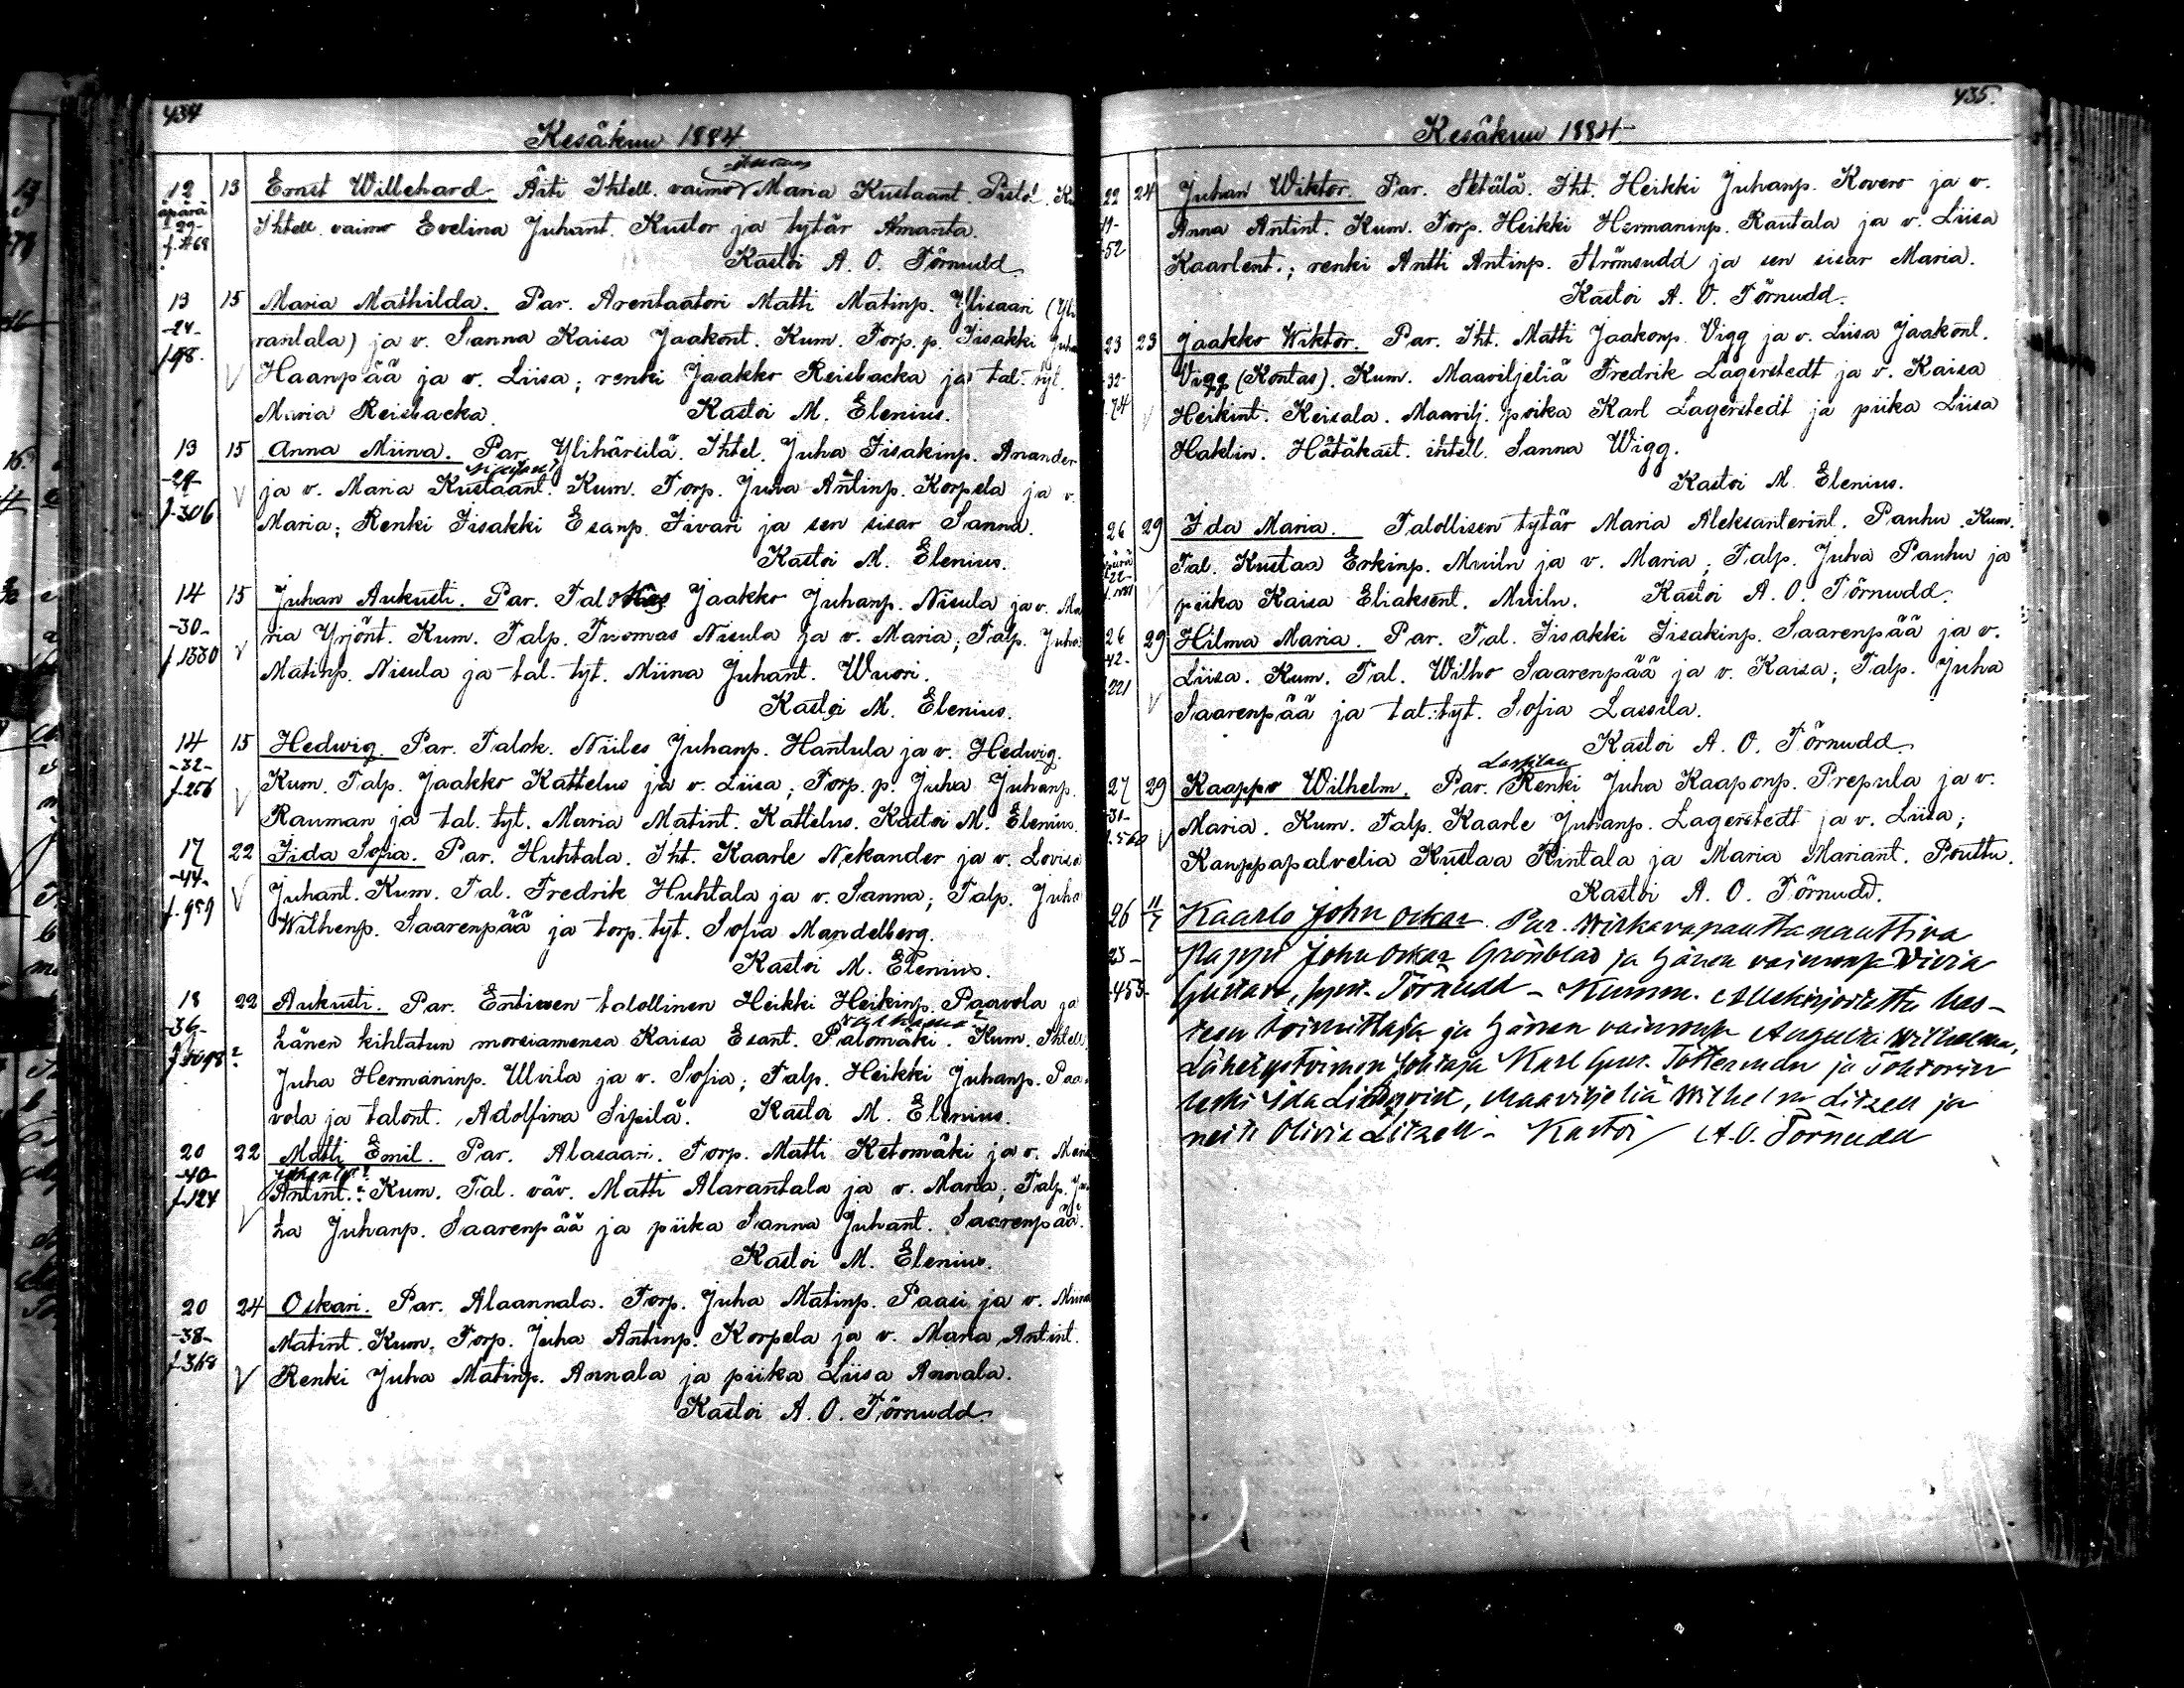 434
Kesäkuu 1884
12 13 Ernst Willehard. Äiti Ihtell. vaimo Maria Kustaant. Pistö.
äpärä
-29-
f.468
Ihtell. vaimo Evelina Juhant. Kustor ja tytär Amanta.
Kastoi A. O. Törnudd
13 15 Maria Mathilda. Par. Arentaatori Matti Matinp. Ylisaari (Yli
-24-
rantala) ja v. Sanna Kaisa Jaakont. Kum. Torp. p. Iisakki Juha
f.98.
Haanpää ja v. Liisa; renki Jaakko Reisbacka ja tal. tyt.
Maria Reisbacka. Kastoi M. Elenius.
13 15 Anna Miina. Par. Ylihärsilä. Ihtel. Juha Iisakinp. Anander
-29-
ja v. Maria Kustaant. Kum. Torp. Juha Antinp. Korpela ja v.
f.306
Maria; Renki Iisakki Esanp. Iivari ja sen sisar Sanna.
Kastoi M. Elenius.
14 15 Juhan Aukusti. Par. Talok Jaakko Juhanp. Nisula ja v. Ma
-30-
ria Yrjönt. Kum. Talp. Tuomas Nisula ja v. Maria; Talp. Juha
f.1330
Matinp. Nisula ja tal. tyt. Miina Juhant. Wuori.
Kastoi M. Elenius.
14 15 Hedwig. Par. Talok. Niiles Juhanp. Hantula ja v. Hedwig.
-32-
Kum. Talp. Jaakko Kattelus ja v. Liisa; Torp. p. Juha Juhanp.
f.256
Rauman ja tal. tyt. Maria Matint. Kattelus. Kastoi M. Elenius.
17 22 Iida Sofia. Par. Huhtala. Iht. Kaarle Nekander ja v. Lovisa
-44-
Juhant. Kum. Tal. Fredrik Huhtala ja v. Sanna; Talp. Juha
f.959
Wilhenp. Saarenpää ja torp. tyt. Sofia Mandelberg.
Kastoi M. Elenius.
18 22 Aukusti. Par. Entinen talollinen Heikki Heikinp. Paavola ja
-36-
hänen kihlatun morsiamensa Kaisa Esant. Palomäki. Kum. Ihtell.
Juha Hermaninp. Ulvila ja v. Sofia; Talp. Heikki Juhanp. Paa-
vola ja talont. Adolfina Sipilä. Kastoi M. Elenius.
20 22 Matti Emil. Par. Alasaari. Torp. Matti Ketomäki ja v. Maria
-40-
Antint. Kum. Tal. väv. Matti Alarantala ja v. Maria; Talp. Ju
f.124
ha Juhanp. Saarenpää ja piika Sanna Juhant. Saarenpää.
Kastoi M. Elenius.
20 24 Oskari. Par. Alaannala. Torp. Juha Matinp. Paasi ja v. Miina
-38-
Matint. Kum. Torp. Juha Antinp. Korpela ja v. Maria Antint.
f.368
Renki Juha Matinp. Annala ja piika Liisa Annala.
Kastoi A. O. Törnudd.
435.
Kesäkuu 1884
22 24 Juhan Wiktor. Par. Setälä. Iht. Heikki Juhanp. Kovero ja v.
Anna Antint. Kum. Torp. Heikki Hermaninp. Rantala ja v. Liisa
Kaarlent.; renki Antti Antinp. Strömsudd ja sen sisar Maria.
Kastoi A. O. Törnudd.
23 23 Jaakko Wiktor. Par. Iht. Matti Jaakonp. Vigg ja v. Liisa Jaakont.
-32-
Vigg (Kontas). Kum. Maaviljeliä Fredrik Lagerstedt ja v. Kaisa
Heikint. Keisala. Maavilj. poika Karl Lagerstedt ja piika Liisa
Haklin. Hätäkast. ihtell. Sanna Wigg.
Kastoi M. Elenius.
26 29 Ida Maria. Talollisen tytär Maria Aleksanterint. Panhu. Kum.
Tal. Kustaa Erkinp. Muilu ja v. Maria; Talp. Juha Panhu ja
piika Kaisa Eliaksent. Muilu. Kastoi A. O. Törnudd.
26 29 Hilma Maria. Par. Tal. Iisakki Iisakinp. Saarenpää ja v.
42-
Liisa. Kum. Tal. Wilho Saarenpää ja v. Kaisa; Talp. Juha
221
Saarenpää ja tal. tyt. Sofia Lassila.
Kastoi A. O. Törnudd.
27 29 Kaappo Wilhelm. Par. Renki Juha Kaaponp. Prepula ja v.
-31-
Maria. Kum. Talp. Kaarle Juhanp. Lagerstedt ja v. Liisa;
f.560
Kauppapalvelia Kustaa Rintala ja Maria Mariant. Pouttu.
Kastoi A. O. Törnudd.
26 11/7 Kaarlo John Oskar. Par. Wirkavapautta nauttiva
23-
Pappi John Oskar Grönblad ja hänen vaimonsa Vivia
455
Gustava, synt. Törnudd - Kumm. Allekirjoitettu kas-
teen toimittaja ja hänen vaimonsa Augusta Wilhelmina,
Lähetystoimen Johtaja Karl Gust. Tötterman ja Tohtorin
leski Ida Lindqvist, Maaviljeliä Wilhelm Litzen ja
neiti Olivia Litzen - Kastoi A. O. Törnudd